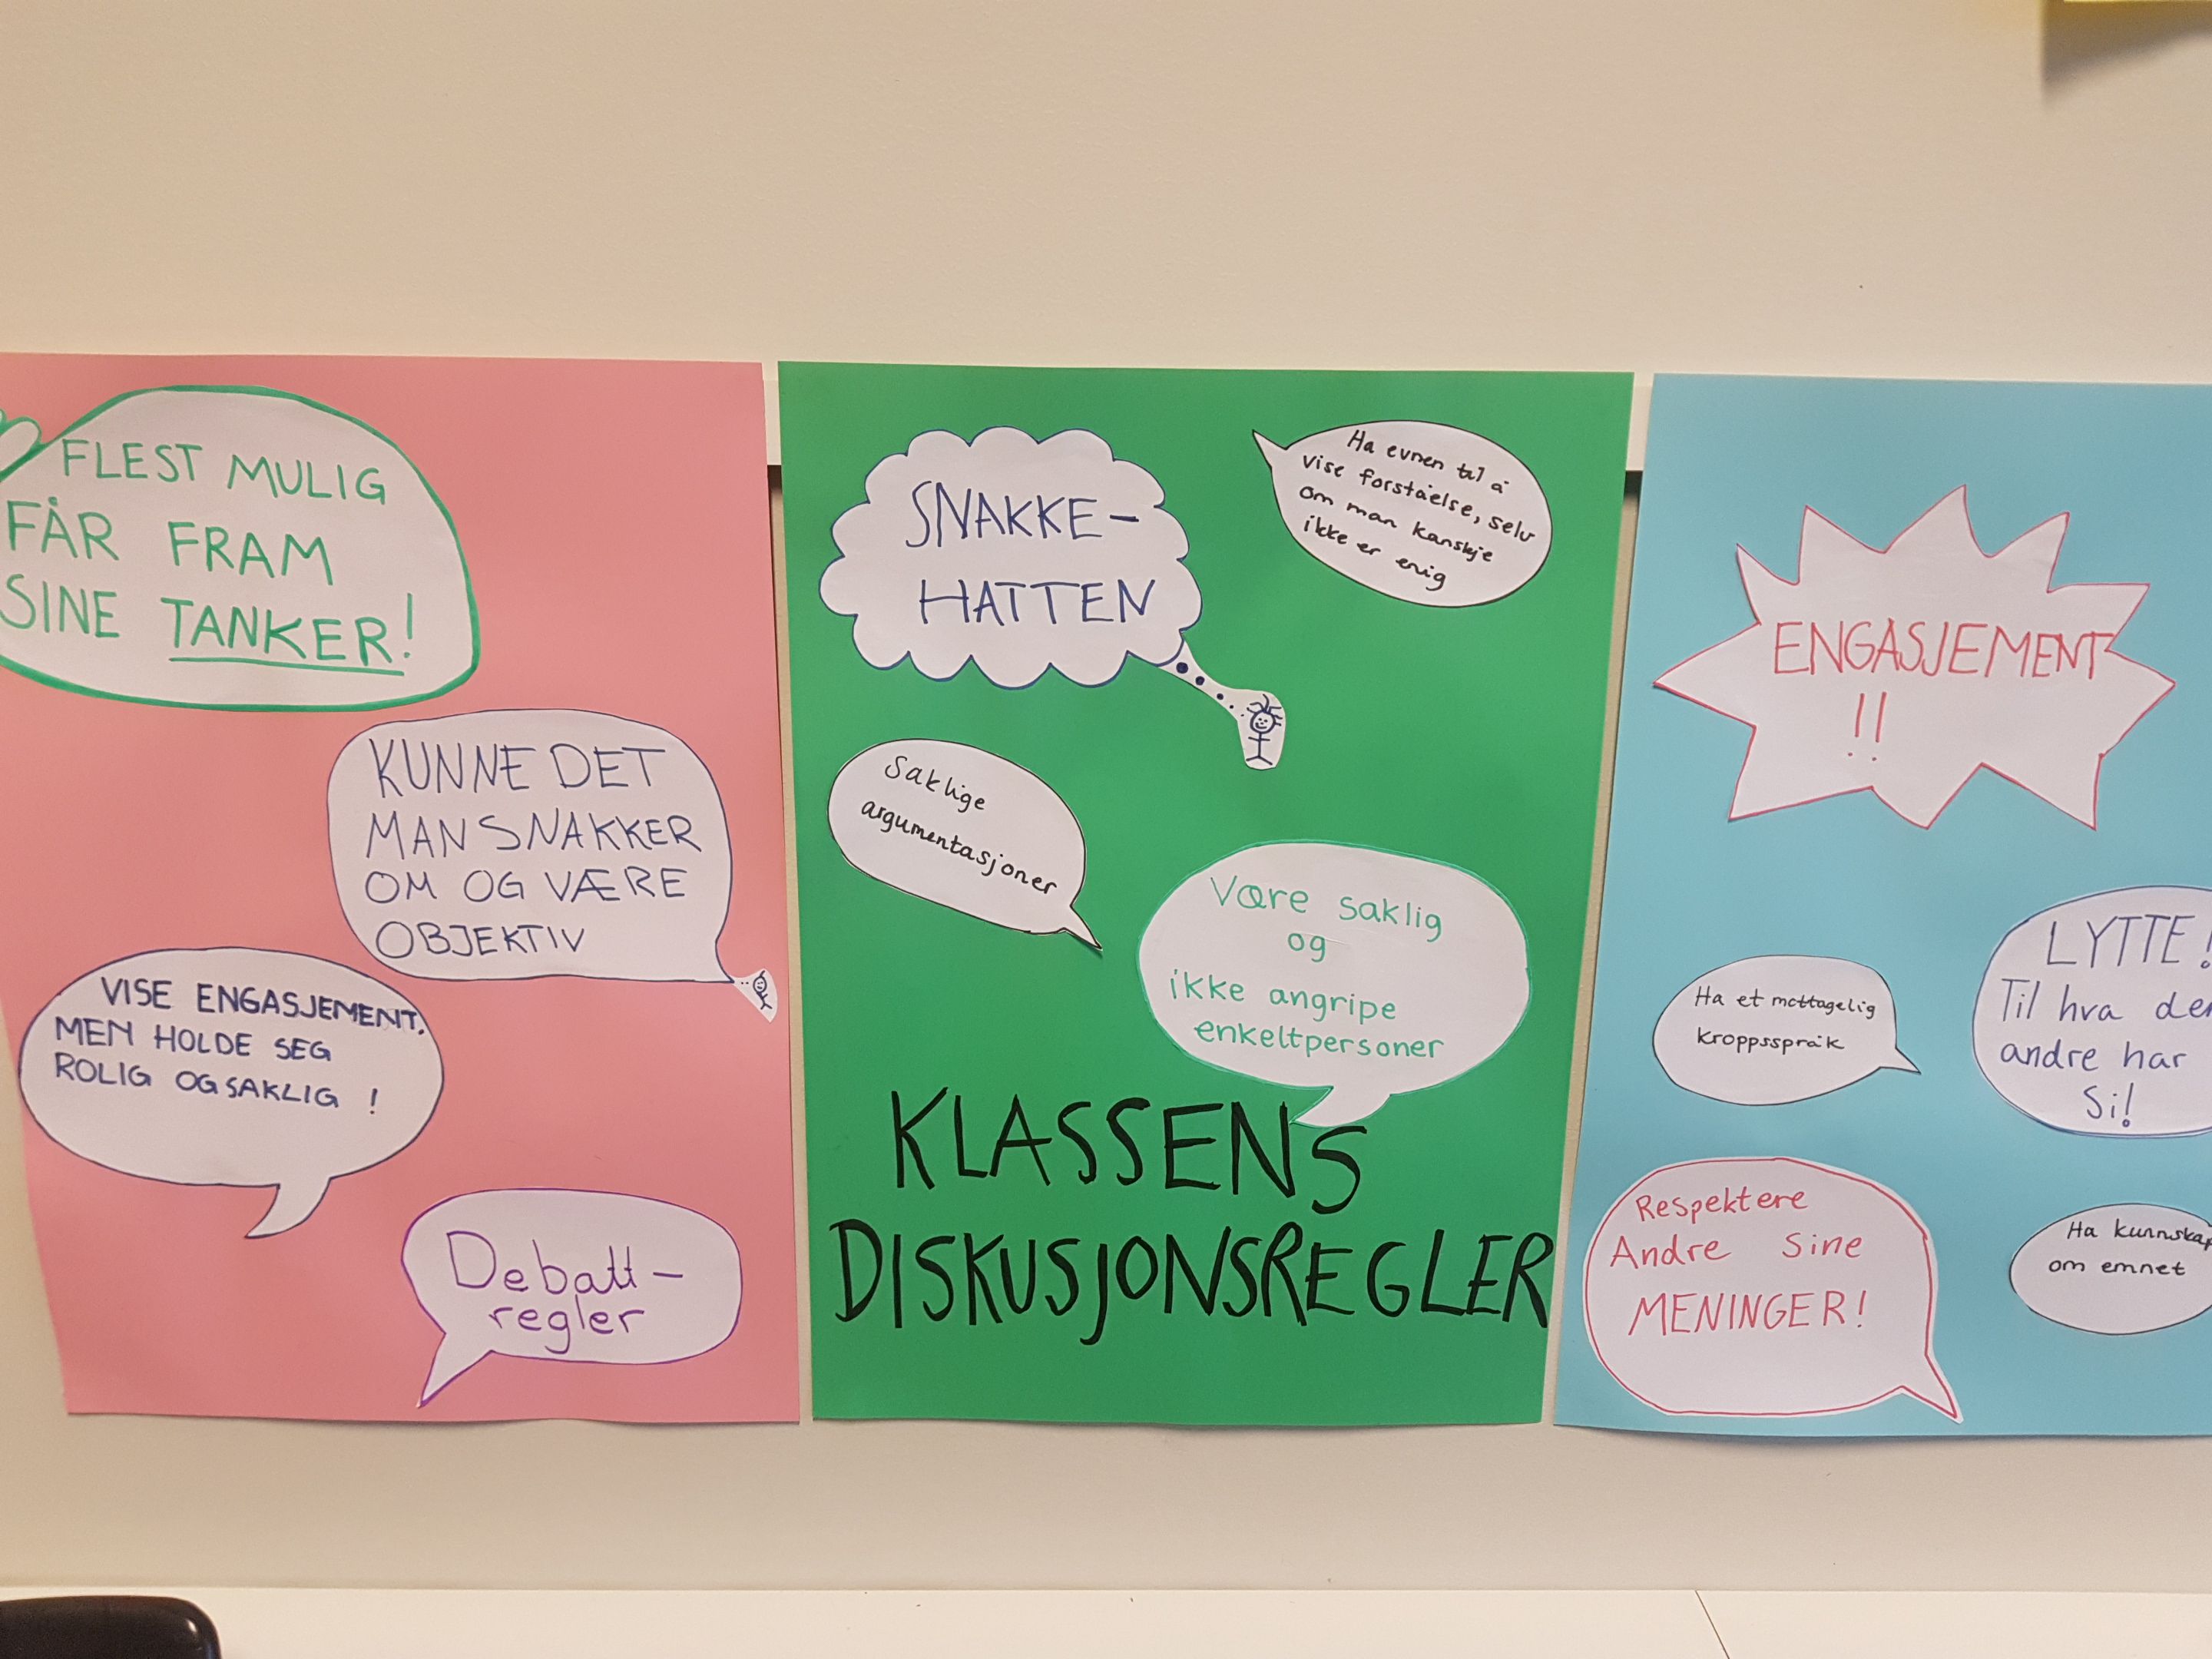 FLEST MULIG
FÅR FRAM
SINE TANKER!
KUNNE DET
MAN SNAKKER
OM OG VÆRE
OBJEKTIV
VISE ENGASJEMENT,
MEN HOLDE SEG
ROLIG OG SAKLIG !
Debatt-
regler
SNAKKE-
HATTEN
Ha evnen til å
vise forståelse, selv
om man kanskje
ikke er enig
Saklige
argumentasjoner
Være saklig
og
ikke angripe
enkeltpersoner
KLASSENS
DISKUSJONSREGLER
ENGASJEMENT
!!
Ha et mottagelig
kroppsspråk
LYTTE!
Til hva
andre har
Si!
Respektere
Andre Sine
MENINGER!
Ha
om emnet